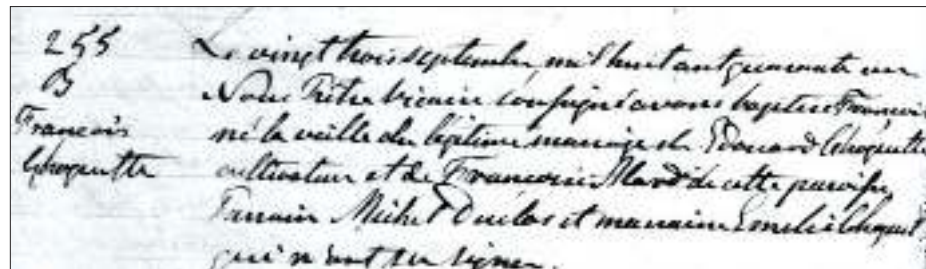 255
B
François
Choquette
Le vingt trois septembre, mil huit cent quarante un
Nous Prêtre Vicaire soussigné avons baptisé François
né la veille du légitime mariage de Edouard Choquette
cultivateur et de Françoise Allard de cette paroisse,
Parrain Michel Duclos et marraine Emelie Choquet
qui n'ont su signer.